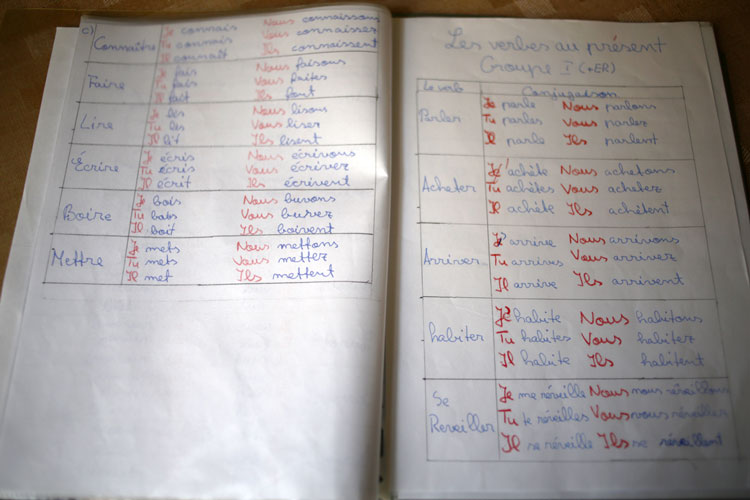 c)
Je connais Nous connaissons
Connaître Tu connais Vous connaissez
Il connaît Ils connaissent
Je fais Nous faisons
Faire Tu fais Vous faites
Il fait Ils font
Je lis Nous lisons
Lire Tu lis Vous lisez
Il lit Ils lisent
Je écris Nous écrivons
Écrire Tu écris Vous écrivez
Il écrit Ils écrivent
Je bois Nous buvons
Boire Tu bois Vous buvez
Il boit Ils boivent
Je mets Nous mettons
Mettre Tu mets Vous mettez
Il met Ils mettent
Les verbes au présent
Groupe I (+ER)
Le verb Conjugaison
Je parle Nous parlons
Parler Tu parles Vous parlez
Il parle Ils parlent
J'achète Nous achetons
Acheter Tu achètes Vous achetez
Il achète Ils achètent
J'arrive Nous arrivons
Arriver Tu arrives Vous arrivez
Il arrive Ils arrivent
J'habite Nous habitons
habiter Tu habites Vous habitez
Il habite Ils habitent
Je me réveille Nous nous réveillons
Se Reveiller Tu te réveilles Vous vous réveillez
Il se réveille Ils se réveillent